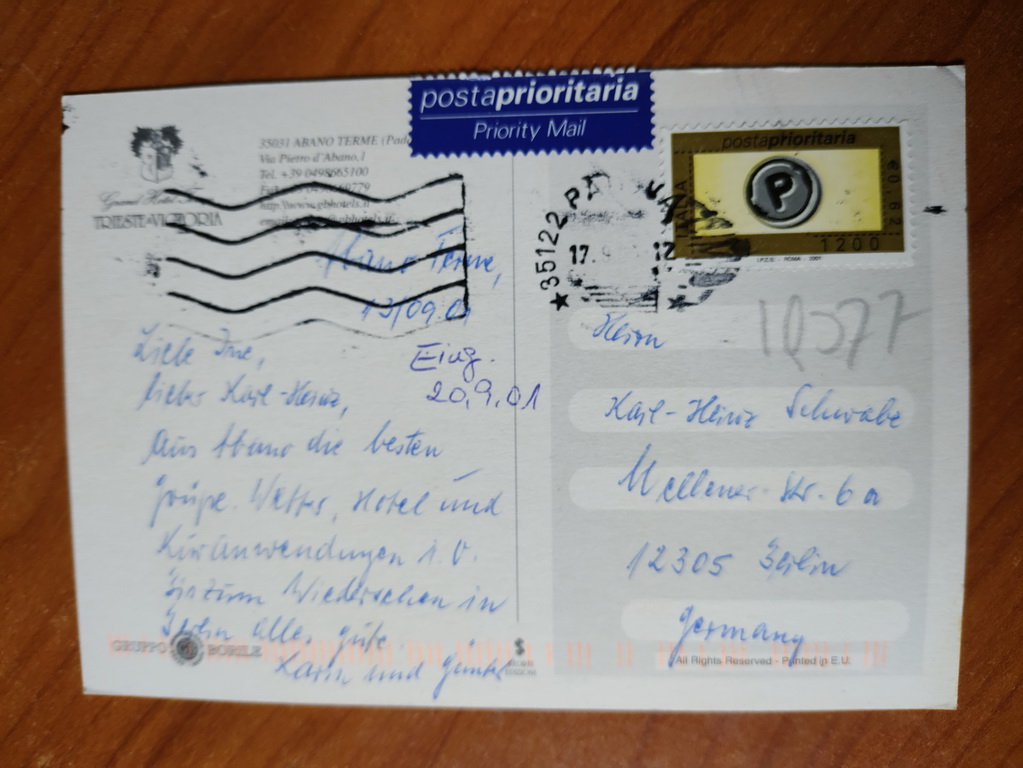 postaprioritaria
Priority Mail
35031 ABANO TERME (Pad
Via Pietro d'Abano, 1
Tel. +39 0498665100
Grand Hotel
TRIESTE & VICTORIA
http://www.gbhotels.it
postaprioritaria
ITALIA
€ 0,62
P
1200
I.P.Z.S. - ROMA - 2001
35122 PA
17.
12
Abano Terme,
13/09.01
Eing.
20.9.01
Liebe Ine,
lieber Karl-Heinz,
Aus Abano die besten
Grüße. Wetter, Hotel und
Kuranwendungen i.O.
Bis zum Wiedersehen in
Berlin alles Gute
Karin und Günter
GRUPPO BORILE
10377
Herrn
Karl-Heinz Schwabe
Mellener Str. 6a
12305 Berlin
Germany
All Rights Reserved - Printed in E.U.